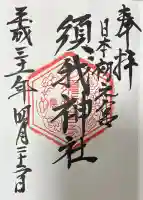 奉拝
日本初之宮
須我神社
平成三十一年四月三十日